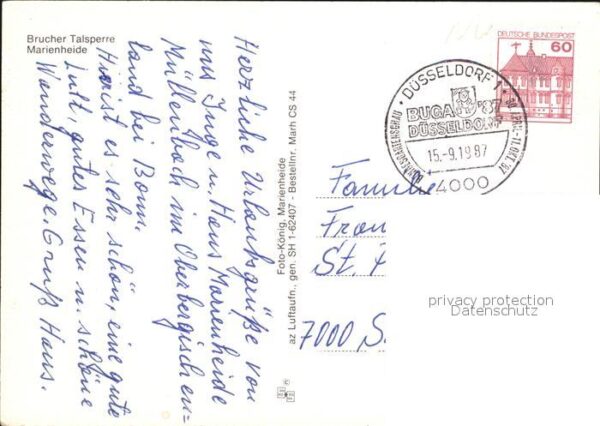 Brucher Talsperre
Marienheide
Herzliche Urlaubsgrüße von
uns Inge u. Hans Marienheide
Müllenbach im Oberbergischen=
land bei Bonn.
Hier ist es sehr schön, eine gute
Luft, gutes Essen u. schöne
Wanderwege. Gruß Hans.
Foto-König, Marienheide
az Luftaufn., gen. SH 1-62407 - Bestellnr. Marh CS 44
DEUTSCHE BUNDESPOST
60
DÜSSELDORF 1
BUGA '87
DÜSSELDORF
BUNDESGARTENSCHAU
30. APRIL-11. OKT. 87
15.-9.1987
4000
Familie
Fran
St.
7000 S.
privacy protection
Datenschutz